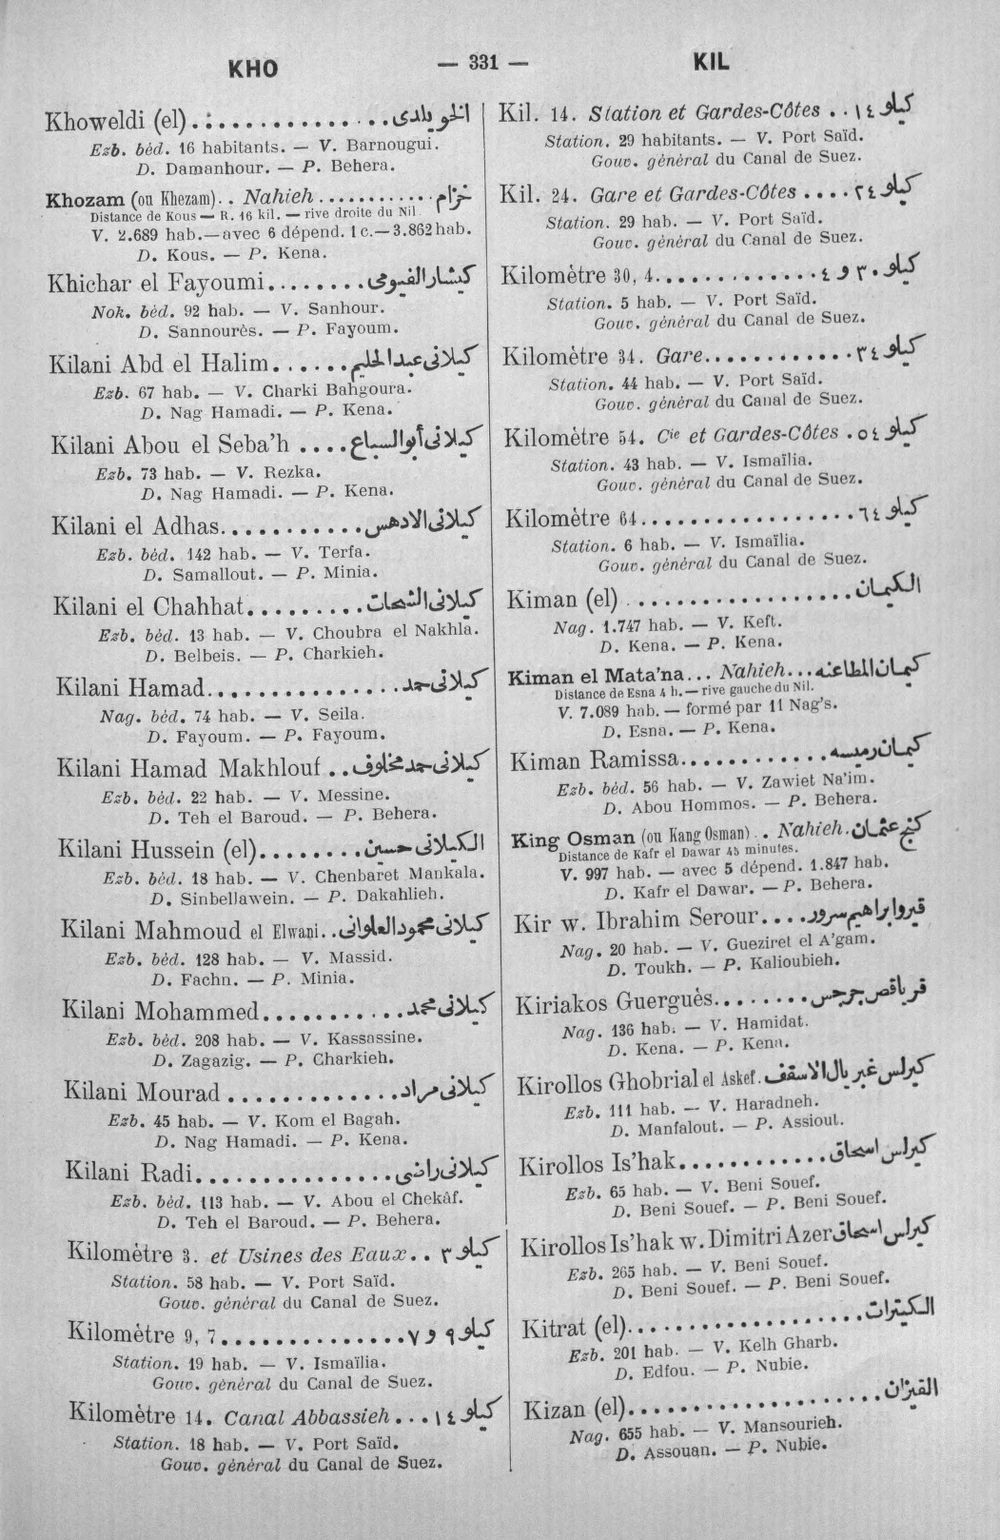 KHO
— 331 —
KIL
Khoweldi (el) الخويلدى
Ezb. béd. 16 habitants. — V. Barnougui.
D. Damanhour. — P. Behera.
Khozam (ou Khezam). . Nahieh خزام
Distance de Kous — R. 16 kil. — rive droite du Nil
V. 2.689 hab.—avec 6 dépend. 1 c.—3.862 hab.
D. Kous. — P. Kena.
Khichar el Fayoumi كشار الفيومى
Nok. béd. 92 hab. — V. Sanhour.
D. Sannourès. — P. Fayoum.
Kilani Abd el Halim كيلانى عبد الحليم
Ezb. 67 hab. — V. Charki Bahgoura.
D. Nag Hamadi. — P. Kena.
Kilani Abou el Seba'h كيلانى أبو السباع
Ezb. 73 hab. — V. Rezka.
D. Nag Hamadi. — P. Kena.
Kilani el Adhas كيلانى الادهس
Ezb. béd. 142 hab. — V. Terfa.
D. Samallout. — P. Minia.
Kilani el Chahhat كيلانى الشحات
Ezb. béd. 13 hab. — V. Choubra el Nakhla.
D. Belbeis. — P. Charkieh.
Kilani Hamad كيلانى حمد
Nag. béd. 74 hab. — V. Seila.
D. Fayoum. — P. Fayoum.
Kilani Hamad Makhlouf كيلانى حمد مخلوف
Ezb. béd. 22 hab. — V. Messine.
D. Teh el Baroud. — P. Behera.
Kilani Hussein (el) الكيلانى حسين
Ezb. béd. 18 hab. — V. Chenbaret Mankala.
D. Sinbellawein. — P. Dakahlieh.
Kilani Mahmoud el Elwani كيلانى محمود العلوانى
Ezb. béd. 128 hab. — V. Massid.
D. Fachn. — P. Minia.
Kilani Mohammed كيلانى محمد
Ezb. béd. 208 hab. — V. Kassassine.
D. Zagazig. — P. Charkieh.
Kilani Mourad كيلانى مراد
Ezb. 45 hab. — V. Kom el Bagah.
D. Nag Hamadi. — P. Kena.
Kilani Radi كيلانى راضى
Ezb. béd. 113 hab. — V. Abou el Chekâf.
D. Teh el Baroud. — P. Behera.
Kilomètre 3. et Usines des Eaux كيلو ٣
Station. 58 hab. — V. Port Saïd.
Gouv. général du Canal de Suez.
Kilomètre 9, 7 كيلو ٩ و ٧
Station. 19 hab. — V. Ismaïlia.
Gouv. général du Canal de Suez.
Kilomètre 14. Canal Abbassieh كيلو ١٤
Station. 18 hab. — V. Port Saïd.
Gouv. général du Canal de Suez.
Kil. 14. Station et Gardes-Côtes كيلو ١٤
Station. 29 habitants. — V. Port Saïd.
Gouv. général du Canal de Suez.
Kil. 24. Gare et Gardes-Côtes كيلو ٢٤
Station. 29 hab. — V. Port Saïd.
Gouv. général du Canal de Suez.
Kilomètre 30, 4 كيلو ٣٠ و ٤
Station. 5 hab. — V. Port Saïd.
Gouv. général du Canal de Suez.
Kilomètre 34. Gare كيلو ٣٤
Station. 44 hab. — V. Port Saïd.
Gouv. général du Canal de Suez.
Kilomètre 54. Cie et Gardes-Côtes كيلو ٥٤
Station. 43 hab. — V. Ismaïlia.
Gouv. général du Canal de Suez.
Kilomètre 64 كيلو ٦٤
Station. 6 hab. — V. Ismaïlia.
Gouv. général du Canal de Suez.
Kiman (el) الكيمان
Nag. 1.747 hab. — V. Keft.
D. Kena. — P. Kena.
Kiman el Mata'na... Nahieh كيمان المطاعنه
Distance de Esna 4 h. — rive gauche du Nil.
V. 7.089 hab. — formé par 11 Nag's.
D. Esna. — P. Kena.
Kiman Ramissa كيمان رميسه
Ezb. béd. 56 hab. — V. Zawiet Na'im.
D. Abou Hommos. — P. Behera.
King Osman (ou Kang Osman) . . Nahieh كنج عثمان
Distance de Kafr el Dawar 45 minutes.
V. 997 hab. — avec 5 dépend. 1.847 hab.
D. Kafr el Dawar. — P. Behera.
Kir w. Ibrahim Serour قير وابراهيم سرور
Nag. 20 hab. — V. Gueziret el A'gam.
D. Toukh. — P. Kalioubieh.
Kiriakos Guerguès قرياقص جرجس
Nag. 136 hab. — V. Hamidat.
D. Kena. — P. Kena.
Kirollos Ghobrial el Askef كيرلس غبريال الاسقف
Ezb. 111 hab. — V. Haradneh.
D. Manfalout. — P. Assiout.
Kirollos Is'hak كيرلس اسحاق
Ezb. 65 hab. — V. Beni Souef.
D. Beni Souef. — P. Beni Souef.
Kirollos Is'hak w. Dimitri Azer كيرلس اسحاق
Ezb. 265 hab. — V. Beni Souef.
D. Beni Souef. — P. Beni Souef.
Kitrat (el) الكيترات
Ezb. 201 hab. — V. Kelh Gharb.
D. Edfou. — P. Nubie.
Kizan (el) القيزان
Nag. 655 hab. — V. Mansourieh.
D. Assouan. — P. Nubie.